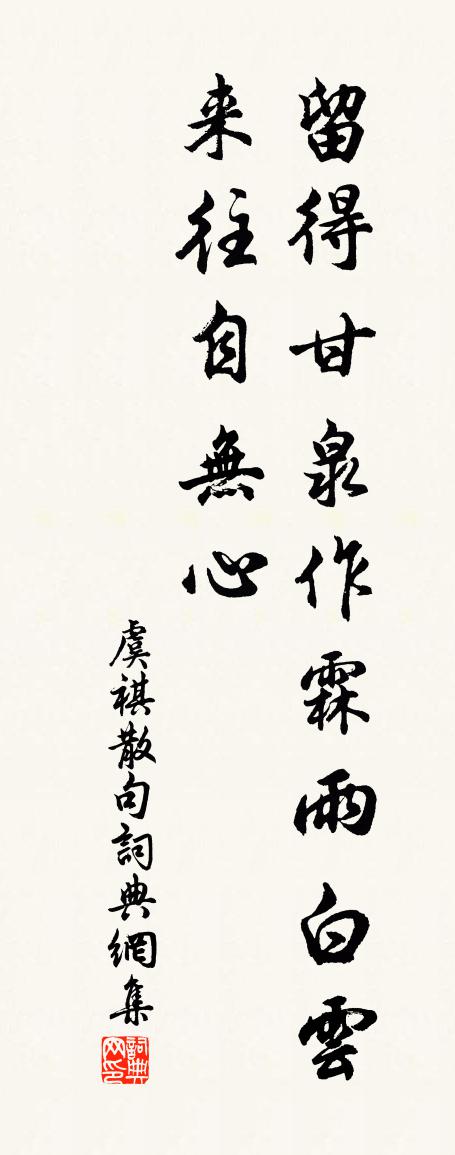 留得甘泉作霖雨白雲
来往自無心
虞祺散句詞典網集
詞典网印